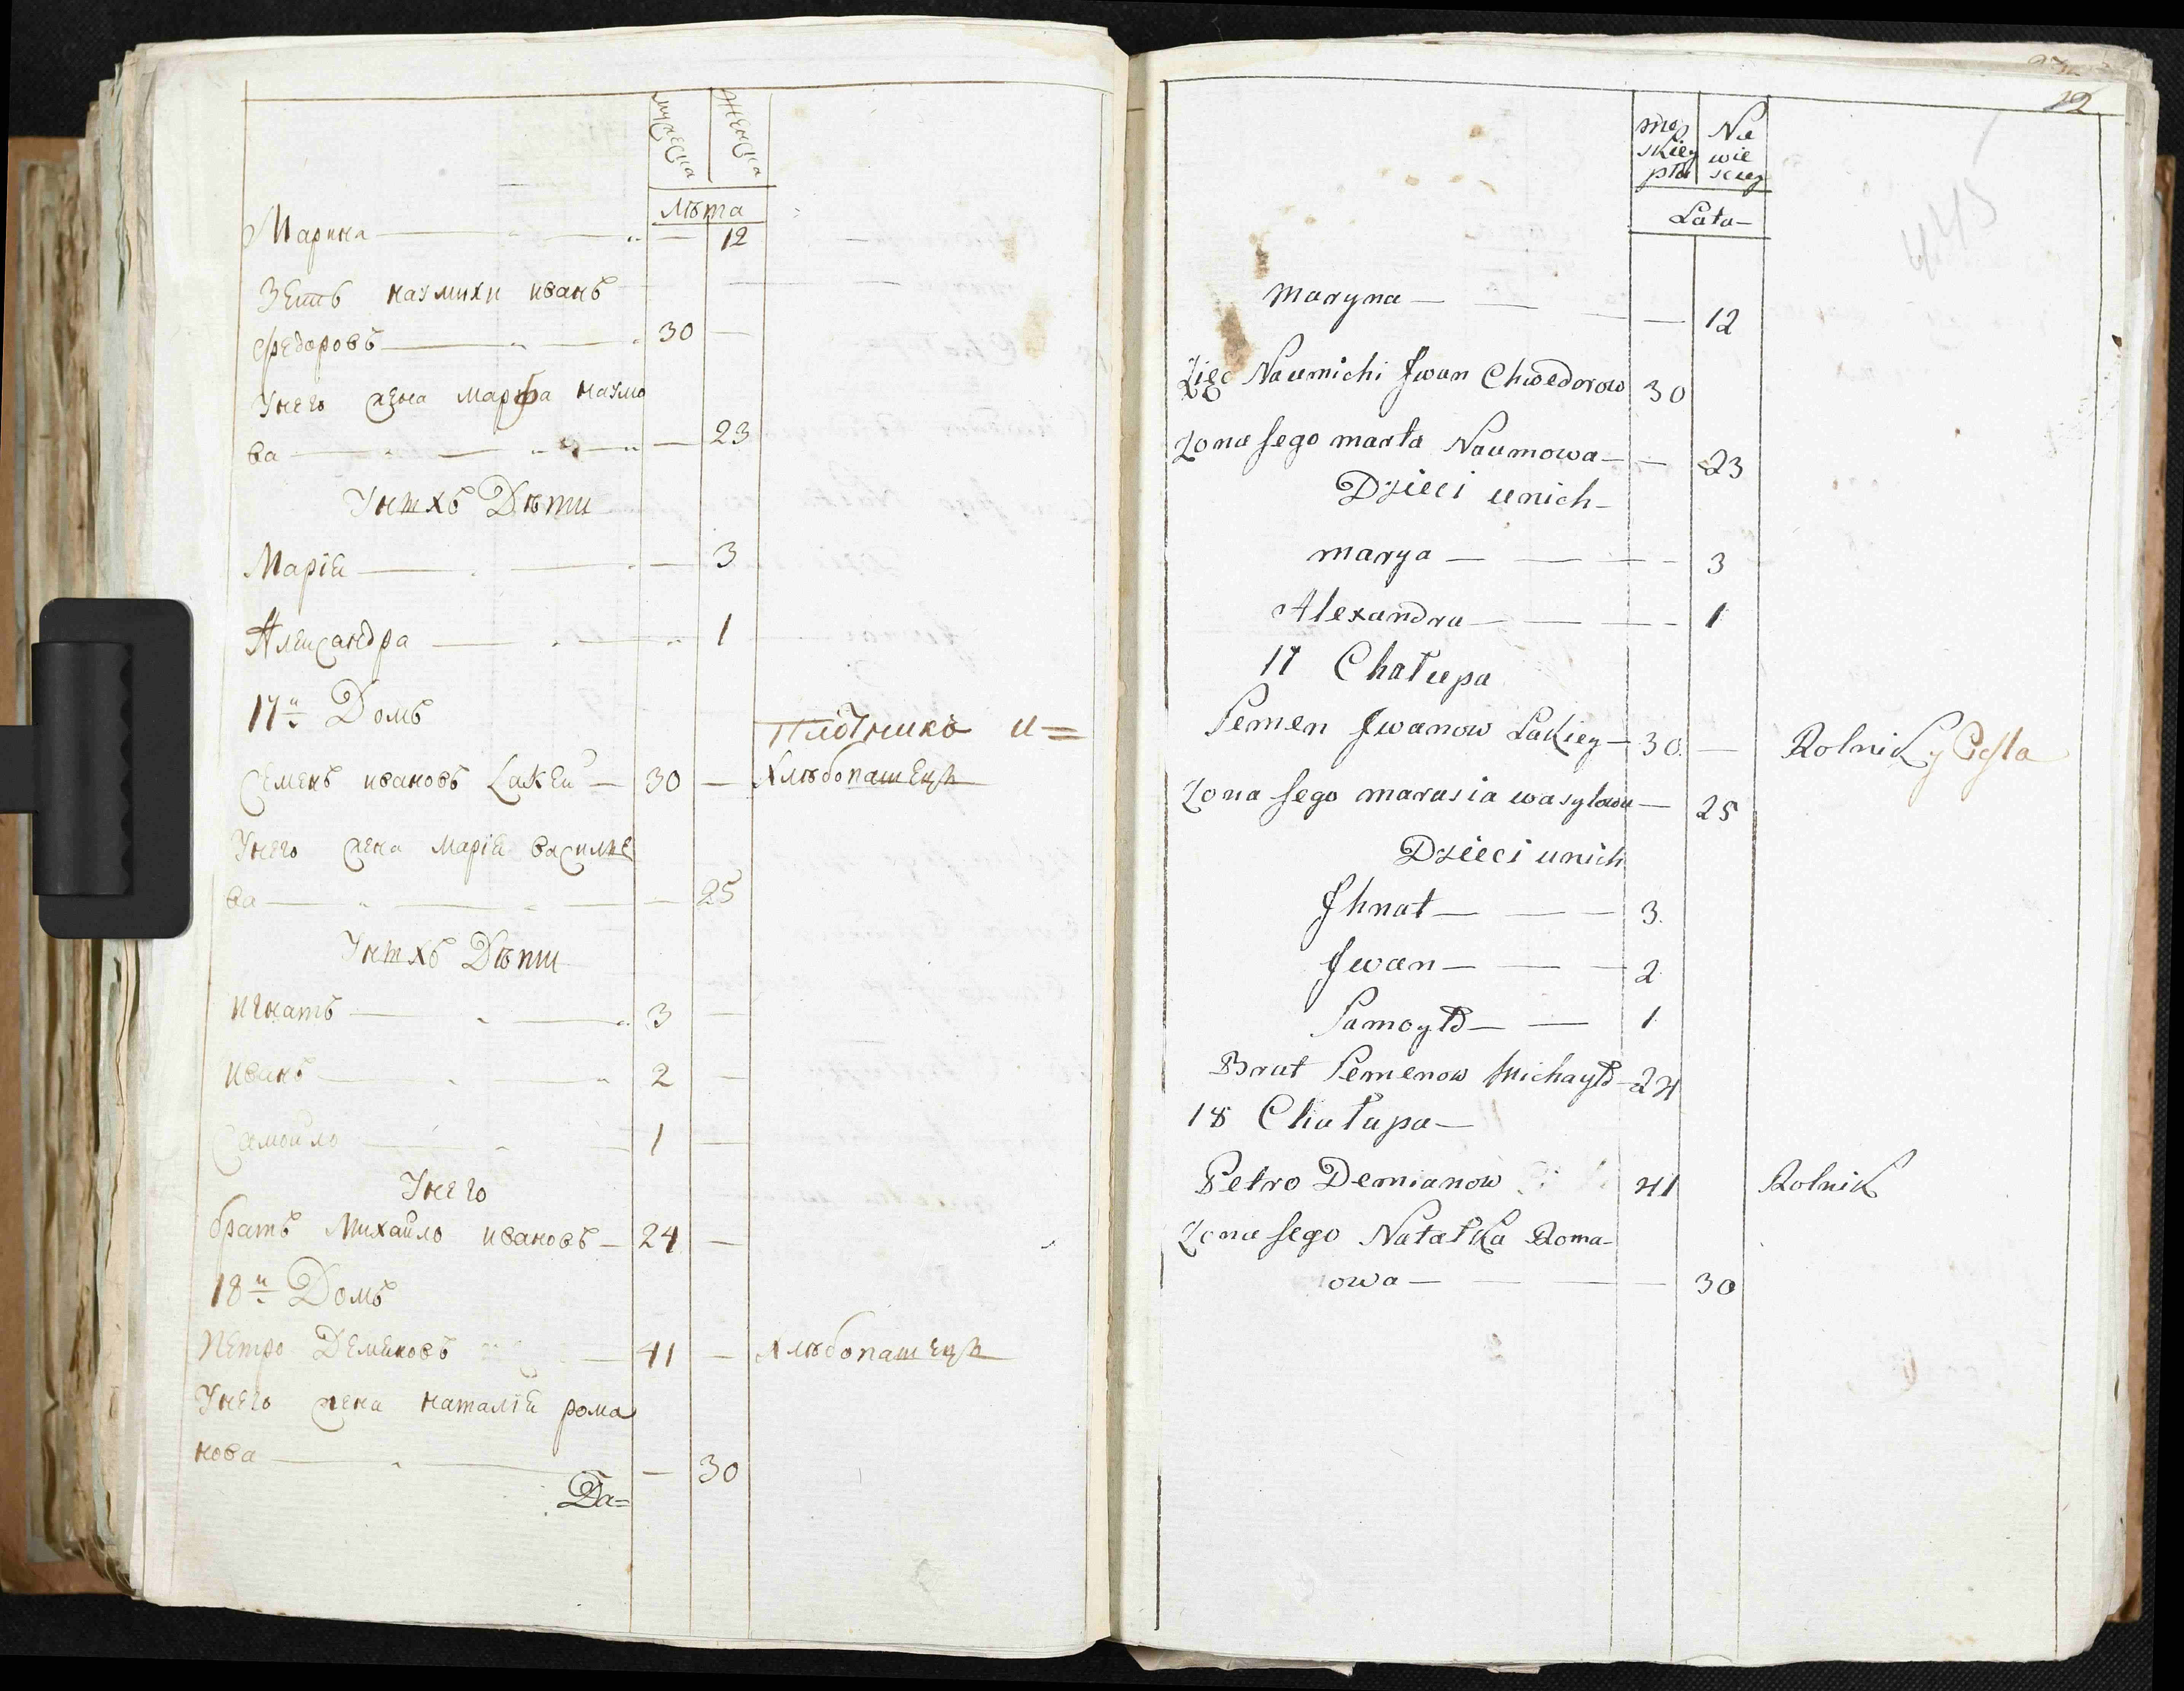 мужеска женска
лѣта
Марина — — 12
Зеть наумихи иванъ
федоровъ — 30 —
Унего жена марфа наумо
ва — — 23
Унихъ Дѣти
Марія — — 3
Александра — 1
17й Домъ
Плотникъ и=
Семенъ ивановъ Lакей — 30 — Хлѣбопашецъ
Унего жена марія василье
ва — — 25
Унихъ Дѣти
игнатъ — 3 —
иванъ — 2 —
Самойло — 1 —
Унего
братъ Михайло ивановъ — 24 —
18й Домъ
Петро Демяновъ — 41 — Хлѣбопашецъ
Унего жена наталія рома
нова — — 30
Да=
12
443
męskiey płci Niewiesciey
Lata
Maryna — — 12
Zięć Naumichi Jwan Chwedorow 30
Zona Jego marta Naumowa — — 23
Dzieci unich —
marya — — 3
Alexandra — — 1
17 Chałupa
Semen Jwanow Lakiey — 30 — Rolnik y Cieśla
Zona Jego marusia wasylowa — 25
Dzieci unich
Jhnat — — 3.
Jwan — — 2
Samoyło — — 1
Brat Semenow Michayło — 24
18 Chałupa —
Petro Demianow 41 Rolnik
Zona Jego Natałka Roma-
nowa — — 30